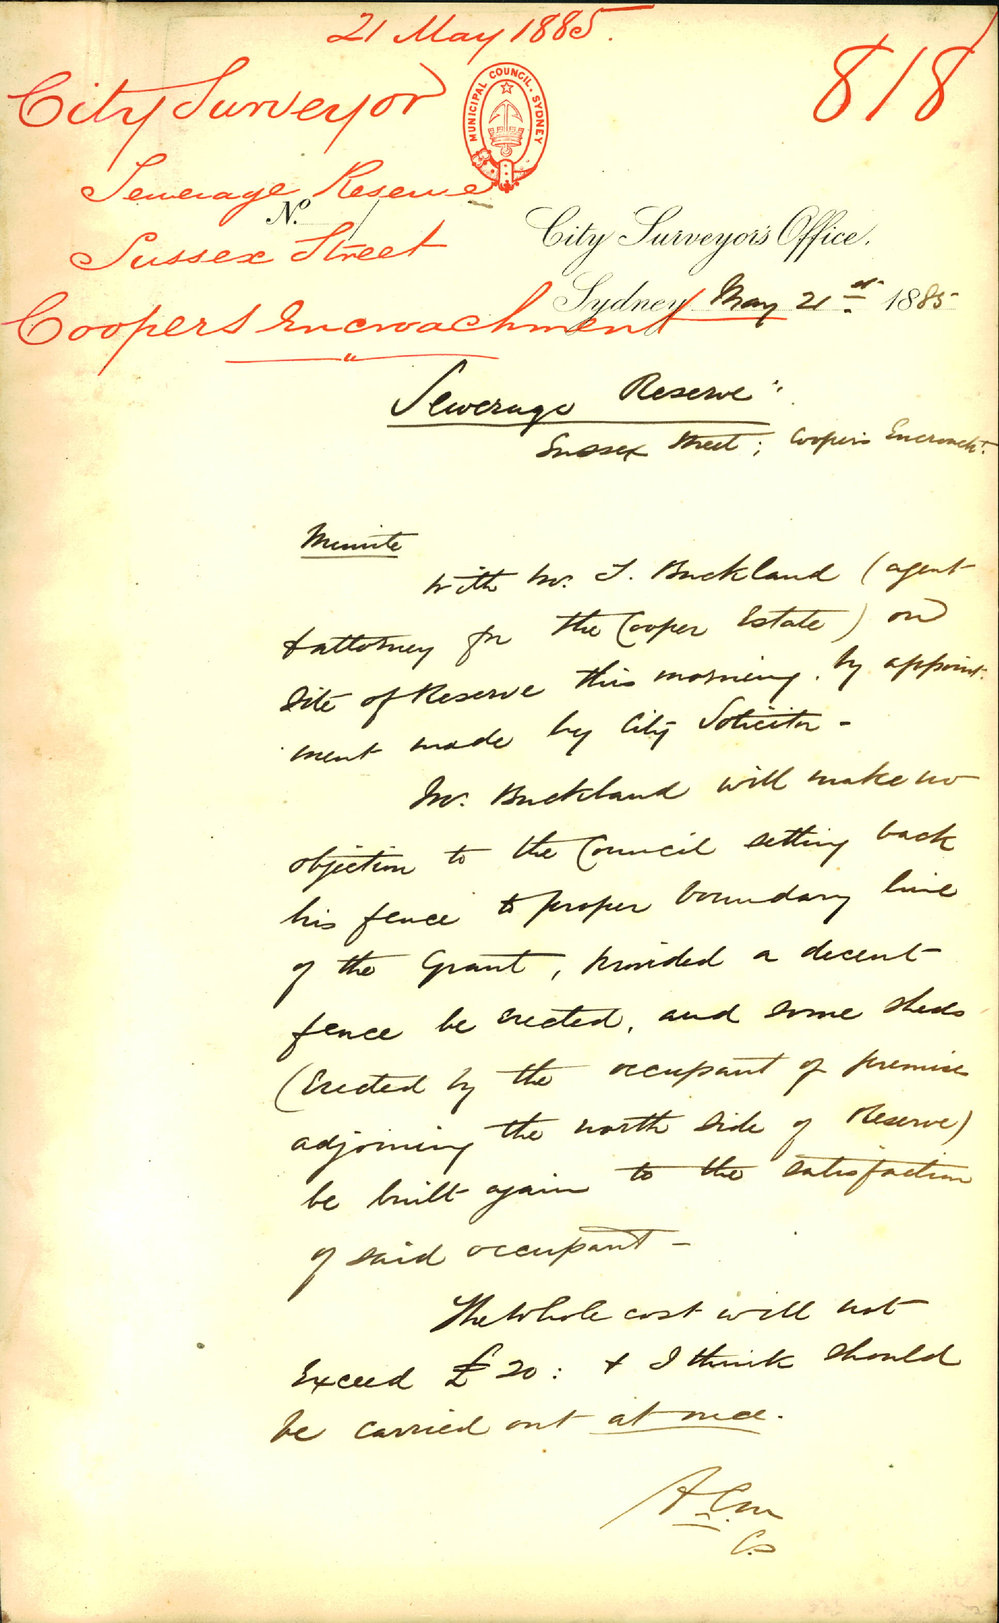 21 May 1885.
818
City Surveyor
MUNICIPAL COUNCIL. SYDNEY
Sewerage Reserve
No.
Sussex Street
City Surveyor's Office.
Sydney May 21st 1885
Coopers Encroachment
Sewerage Reserve
Sussex Street; Cooper's Encroacht.
Minute
With Mr. T. Buckland (agent
& attorney for the Cooper Estate) on
site of Reserve this morning, by appoint
ment made by City Solicitor -
Mr. Buckland will make no
objection to the Council setting back
his fence to proper boundary line
of the Grant, provided a decent
fence be erected, and some sheds
(erected by the occupant of premises
adjoining the north side of Reserve)
be built again to the satisfaction
of said occupant -
The whole cost will not
exceed £20: & I think should
be carried out at once.
C.S